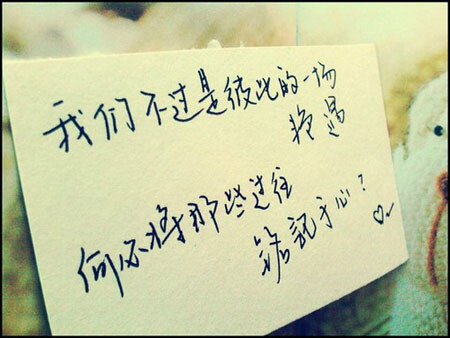 我们不过是彼此的一场
艳遇
何必将那些过往
铭记于心？